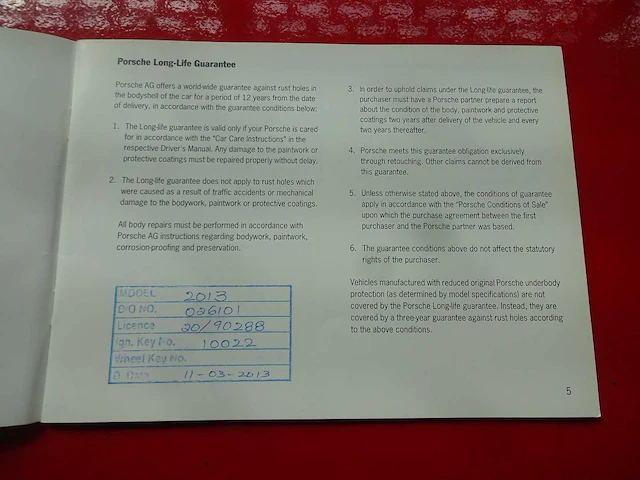 Porsche Long-Life Guarantee
Porsche AG offers a world-wide guarantee against rust holes in
the bodyshell of the car for a period of 12 years from the date
of delivery, in accordance with the guarantee conditions below:
1. The Long-life guarantee is valid only if your Porsche is cared
for in accordance with the "Car Care Instructions" in the
respective Driver's Manual. Any damage to the paintwork or
protective coatings must be repaired properly without delay.
2. The Long-life guarantee does not apply to rust holes which
were caused as a result of traffic accidents or mechanical
damage to the bodywork, paintwork or protective coatings.
All body repairs must be performed in accordance with
Porsche AG instructions regarding bodywork, paintwork,
corrosion-proofing and preservation.
MODEL 2013
D O NO. 026101
Licence 20/90288
Ign. Key No. 10022
Wheel Key No.
D. Date 11-03-2013
3. In order to uphold claims under the Long-life guarantee, the
purchaser must have a Porsche partner prepare a report
about the condition of the body, paintwork and protective
coatings two years after delivery of the vehicle and every
two years thereafter.
4. Porsche meets this guarantee obligation exclusively
through retouching. Other claims cannot be derived from
this guarantee.
5. Unless otherwise stated above, the conditions of guarantee
apply in accordance with the "Porsche Conditions of Sale"
upon which the purchase agreement between the first
purchaser and the Porsche partner was based.
6. The guarantee conditions above do not affect the statutory
rights of the purchaser.
Vehicles manufactured with reduced original Porsche underbody
protection (as determined by model specifications) are not
covered by the Porsche Long-life guarantee. Instead, they are
covered by a three-year guarantee against rust holes according
to the above conditions.
5